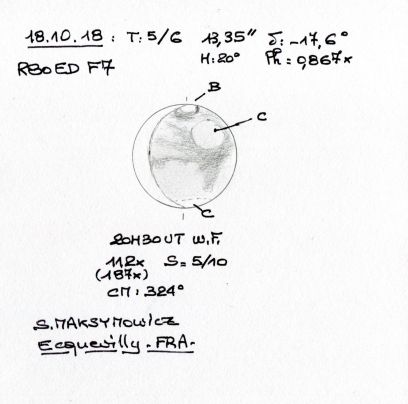 18.10.18 : T: 5/6 13,35" δ: -17,6°
H: 20° Ph: 0,867x
R80ED F7
B
C
C
20H30UT W.F.
112x S= 5/10
(187x)
CM: 324°
S. MAKSYMOWICZ
Ecquevilly - FRA -